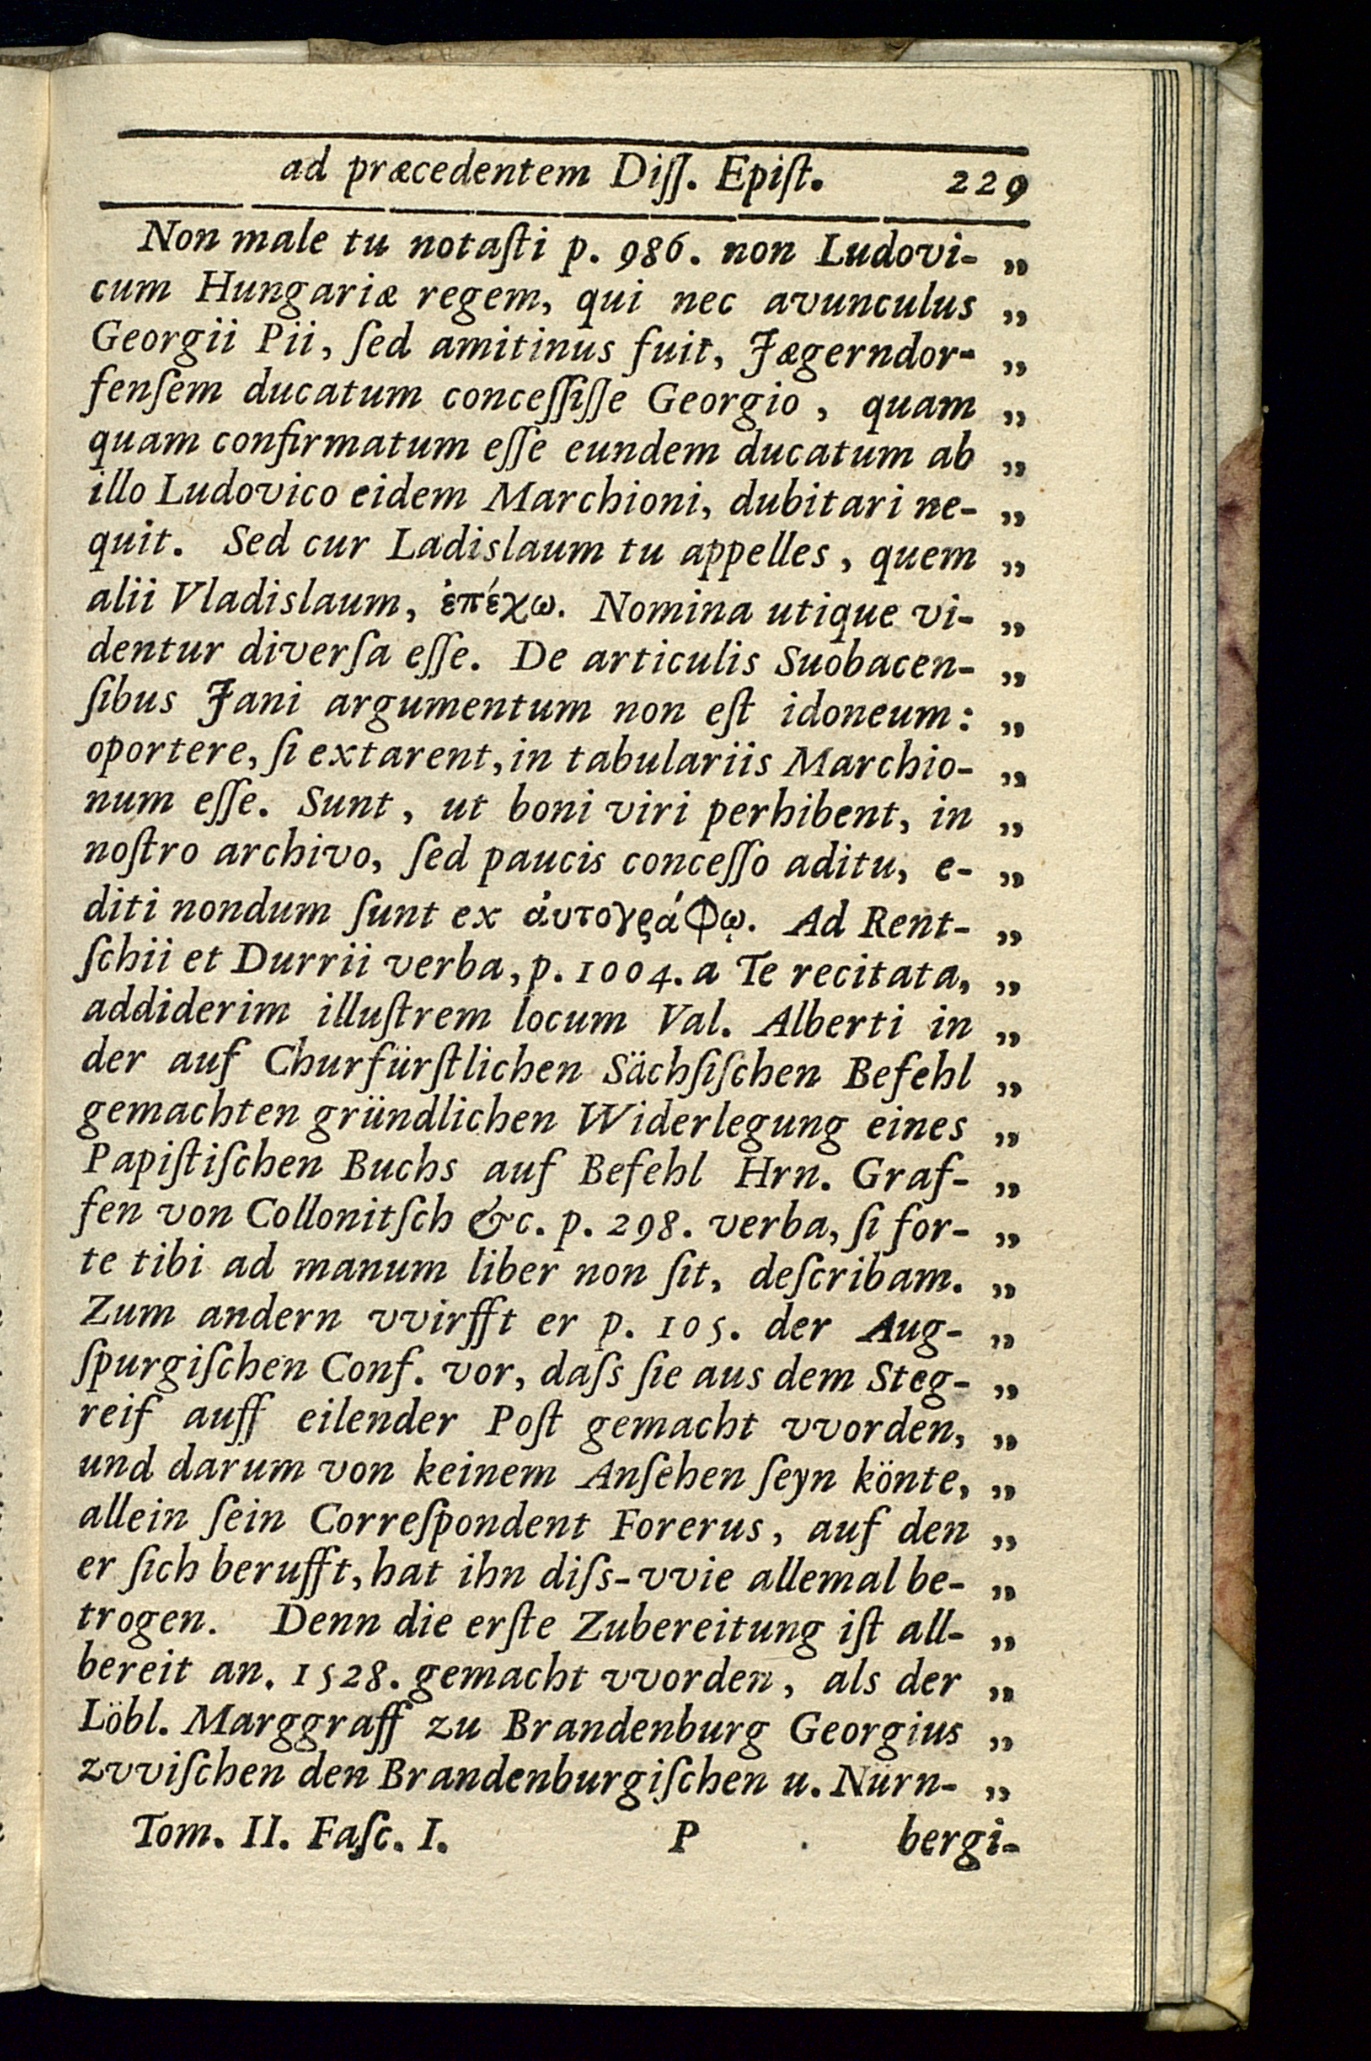 ad præcedentem Diſſ. Epiſt. 229
Non male tu notaſti p. 986. non Ludovi- „
cum Hungariæ regem, qui nec avunculus „
Georgii Pii, ſed amitinus fuit, Jægerndor- „
fenſem ducatum conceſſiſſe Georgio, quam „
quam confirmatum eſſe eundem ducatum ab „
illo Ludovico eidem Marchioni, dubitari ne- „
quit. Sed cur Ladislaum tu appelles, quem „
alii Vladislaum, ἐπέχω. Nomina utique vi- „
dentur diverſa eſſe. De articulis Suobacen- „
ſibus Jani argumentum non eſt idoneum: „
oportere, ſi extarent, in tabulariis Marchio- „
num eſſe. Sunt, ut boni viri perhibent, in „
noſtro archivo, ſed paucis conceſſo aditu, e- „
diti nondum ſunt ex ἀυτογράφῳ. Ad Rent- „
ſchii et Durrii verba, p. 1004. a Te recitata, „
addiderim illuſtrem locum Val. Alberti in „
der auf Churfürſtlichen Sächſiſchen Befehl „
gemachten gründlichen Widerlegung eines „
Papiſtiſchen Buchs auf Befehl Hrn. Graf- „
fen von Collonitſch &c. p. 298. verba, ſi for- „
te tibi ad manum liber non ſit, deſcribam. „
Zum andern vvirfft er p. 105. der Aug- „
ſpurgiſchen Conf. vor, daſs ſie aus dem Steg- „
reif auff eilender Poſt gemacht vvorden, „
und darum von keinem Anſehen ſeyn könte, „
allein ſein Correſpondent Forerus, auf den „
er ſich berufft, hat ihn diſs-vvie allemal be- „
trogen. Denn die erſte Zubereitung iſt all- „
bereit an. 1528. gemacht vvorden, als der „
Löbl. Marggraff zu Brandenburg Georgius „
zvviſchen den Brandenburgiſchen u. Nürn- „
Tom. II. Faſc. I. P bergi-